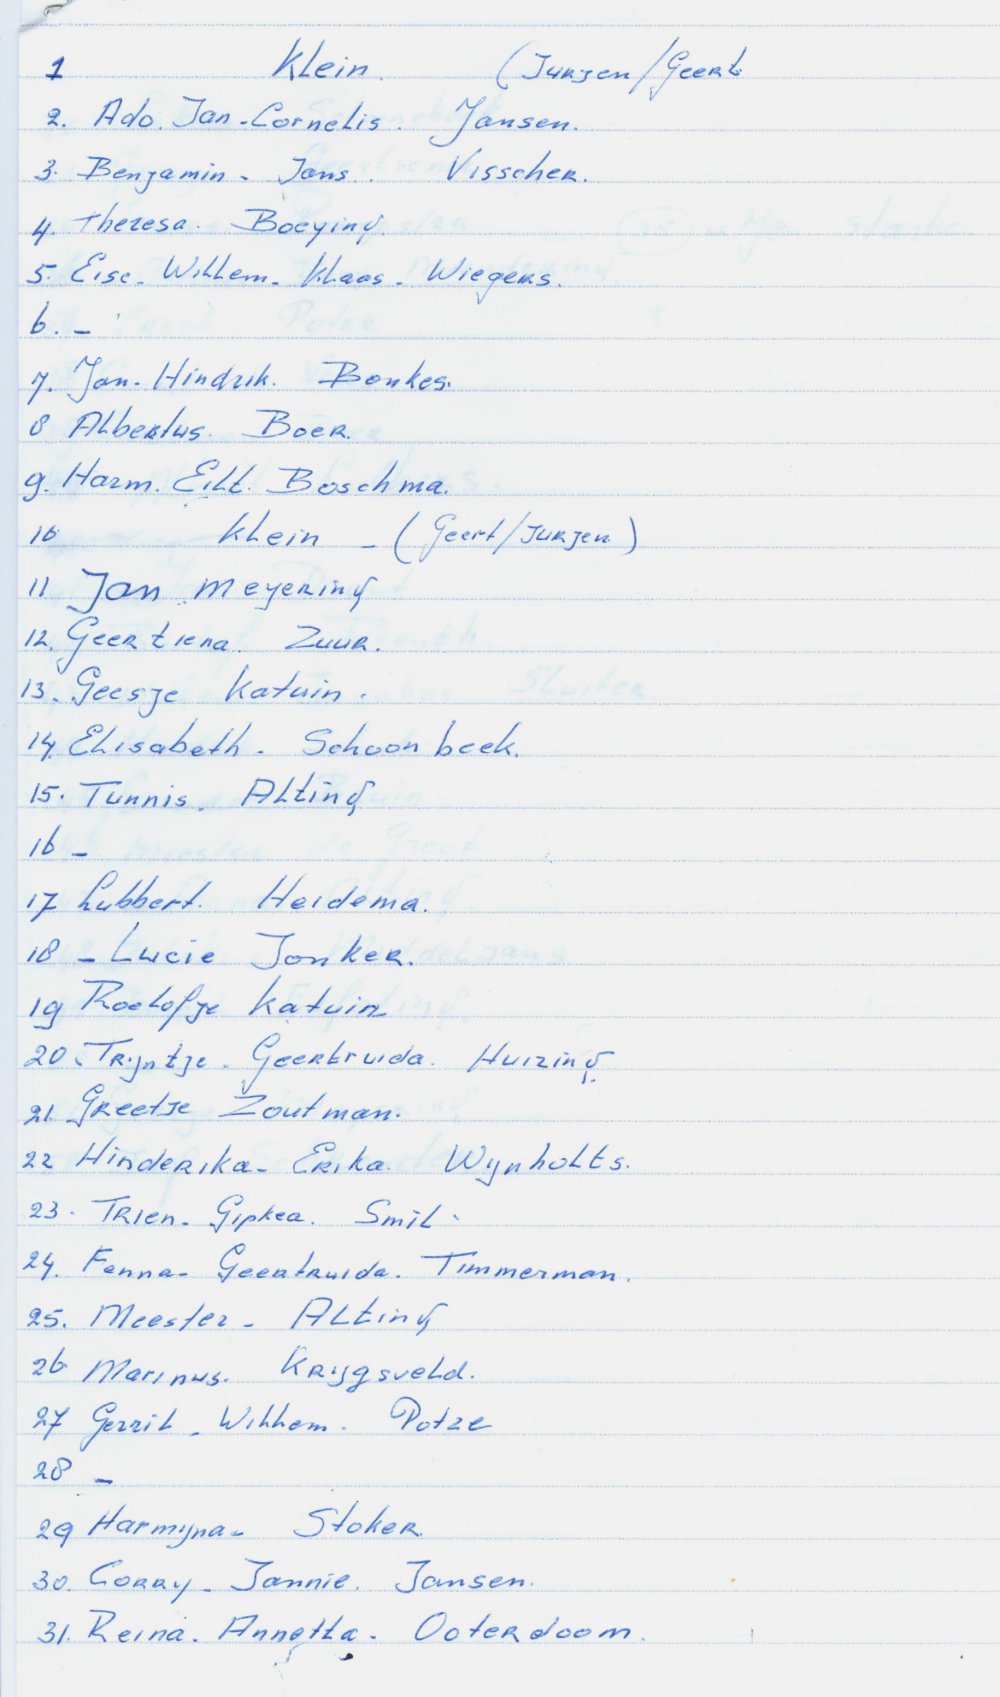 1 Klein. (Jurjen/Geert
2. Ado. Jan-Cornelis. Jansen.
3. Benjamin - Jans. Visscher.
4. Theresa. Boeying.
5. Eise. Willem. Klaas. Wiegers.
6. -
7. Jan. Hindrik. Bonkes.
8 Albertus. Boer.
9. Harm. Eilt. Boschma.
10 Klein - (Geert/Jurjen)
11 Jan. Meyering
12. Geertiena. Zuur.
13. Geesje Katuin.
14. Elisabeth. Schoonbeek.
15. Tunnis. Alting
16 -
17 Lubbert. Heidema.
18 - Lucie Jonker.
19 Roelofje Katuin
20. Trijntje. Geertruida. Huizing.
21 Greetje Zoutman.
22 Hinderika- Erika. Wynholts.
23. Trien. Gipkea. Smil.
24. Fenna- Geertruida. Timmerman.
25. Meester - Alting
26 Marinus. Krijgsveld.
27 Gerrit. Willem. Potze
28 -
29 Harmijna- Stoker
30. Corry- Jannie. Jansen.
31. Reina. Annetta. Ooterdoom.